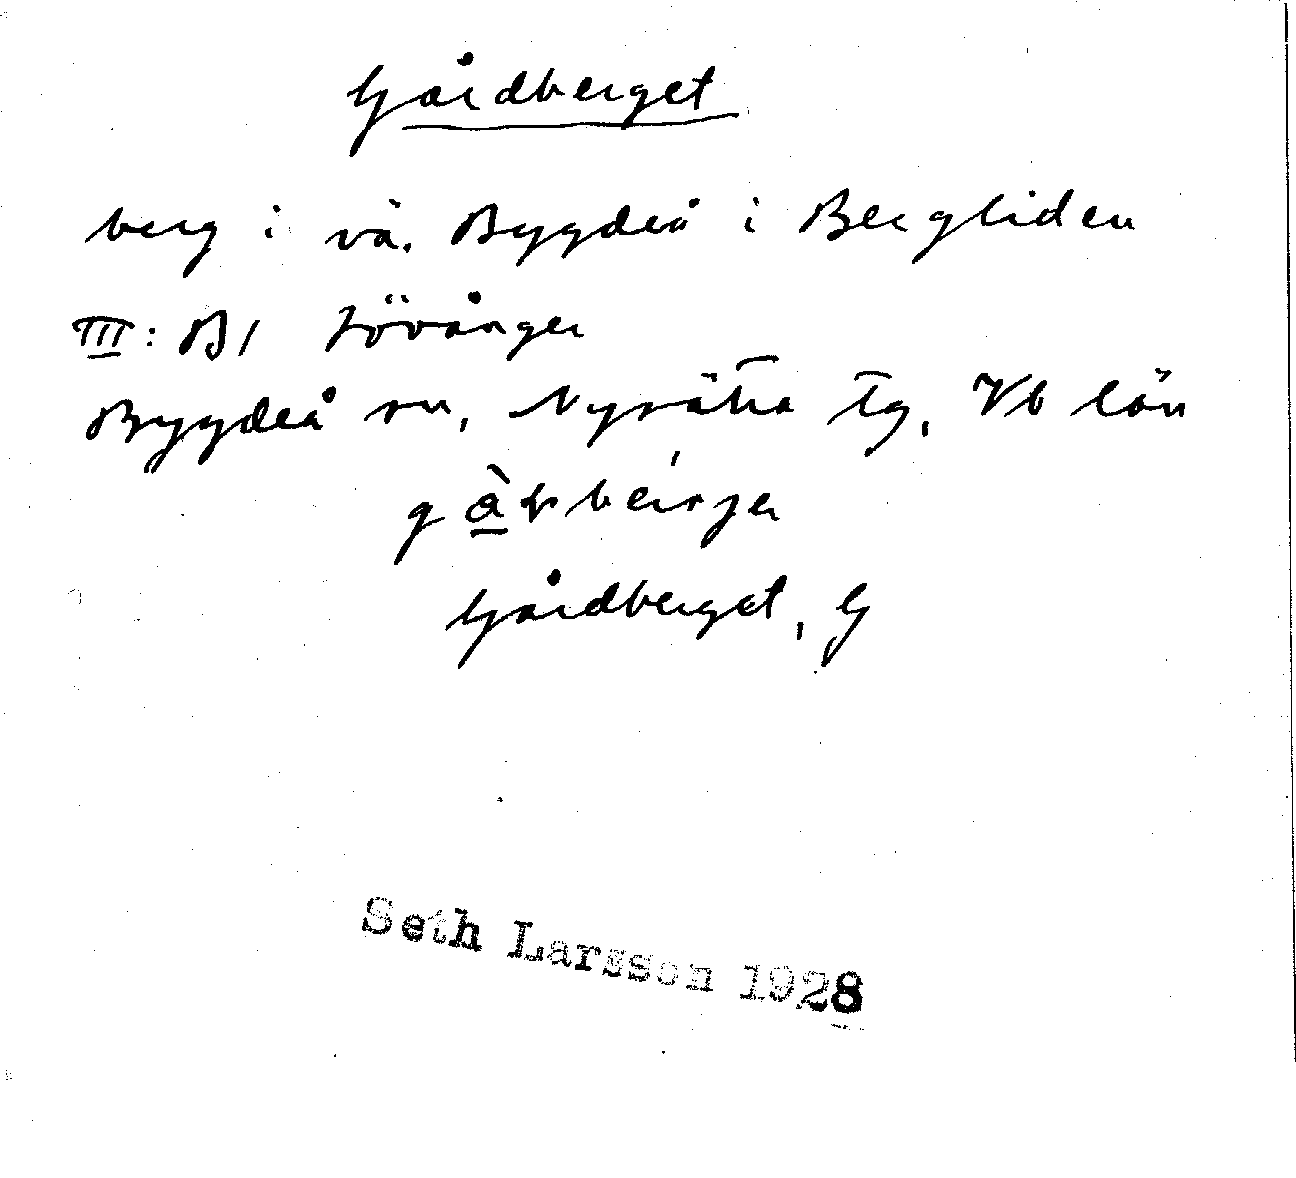 Gårdberget
berg i vä. Bygdeå i Bergliden
III: B/ Lövånger
Bygdeå sn, Nysätra tg, Vb län
Gårdberget, G
Seth Larsson 1928